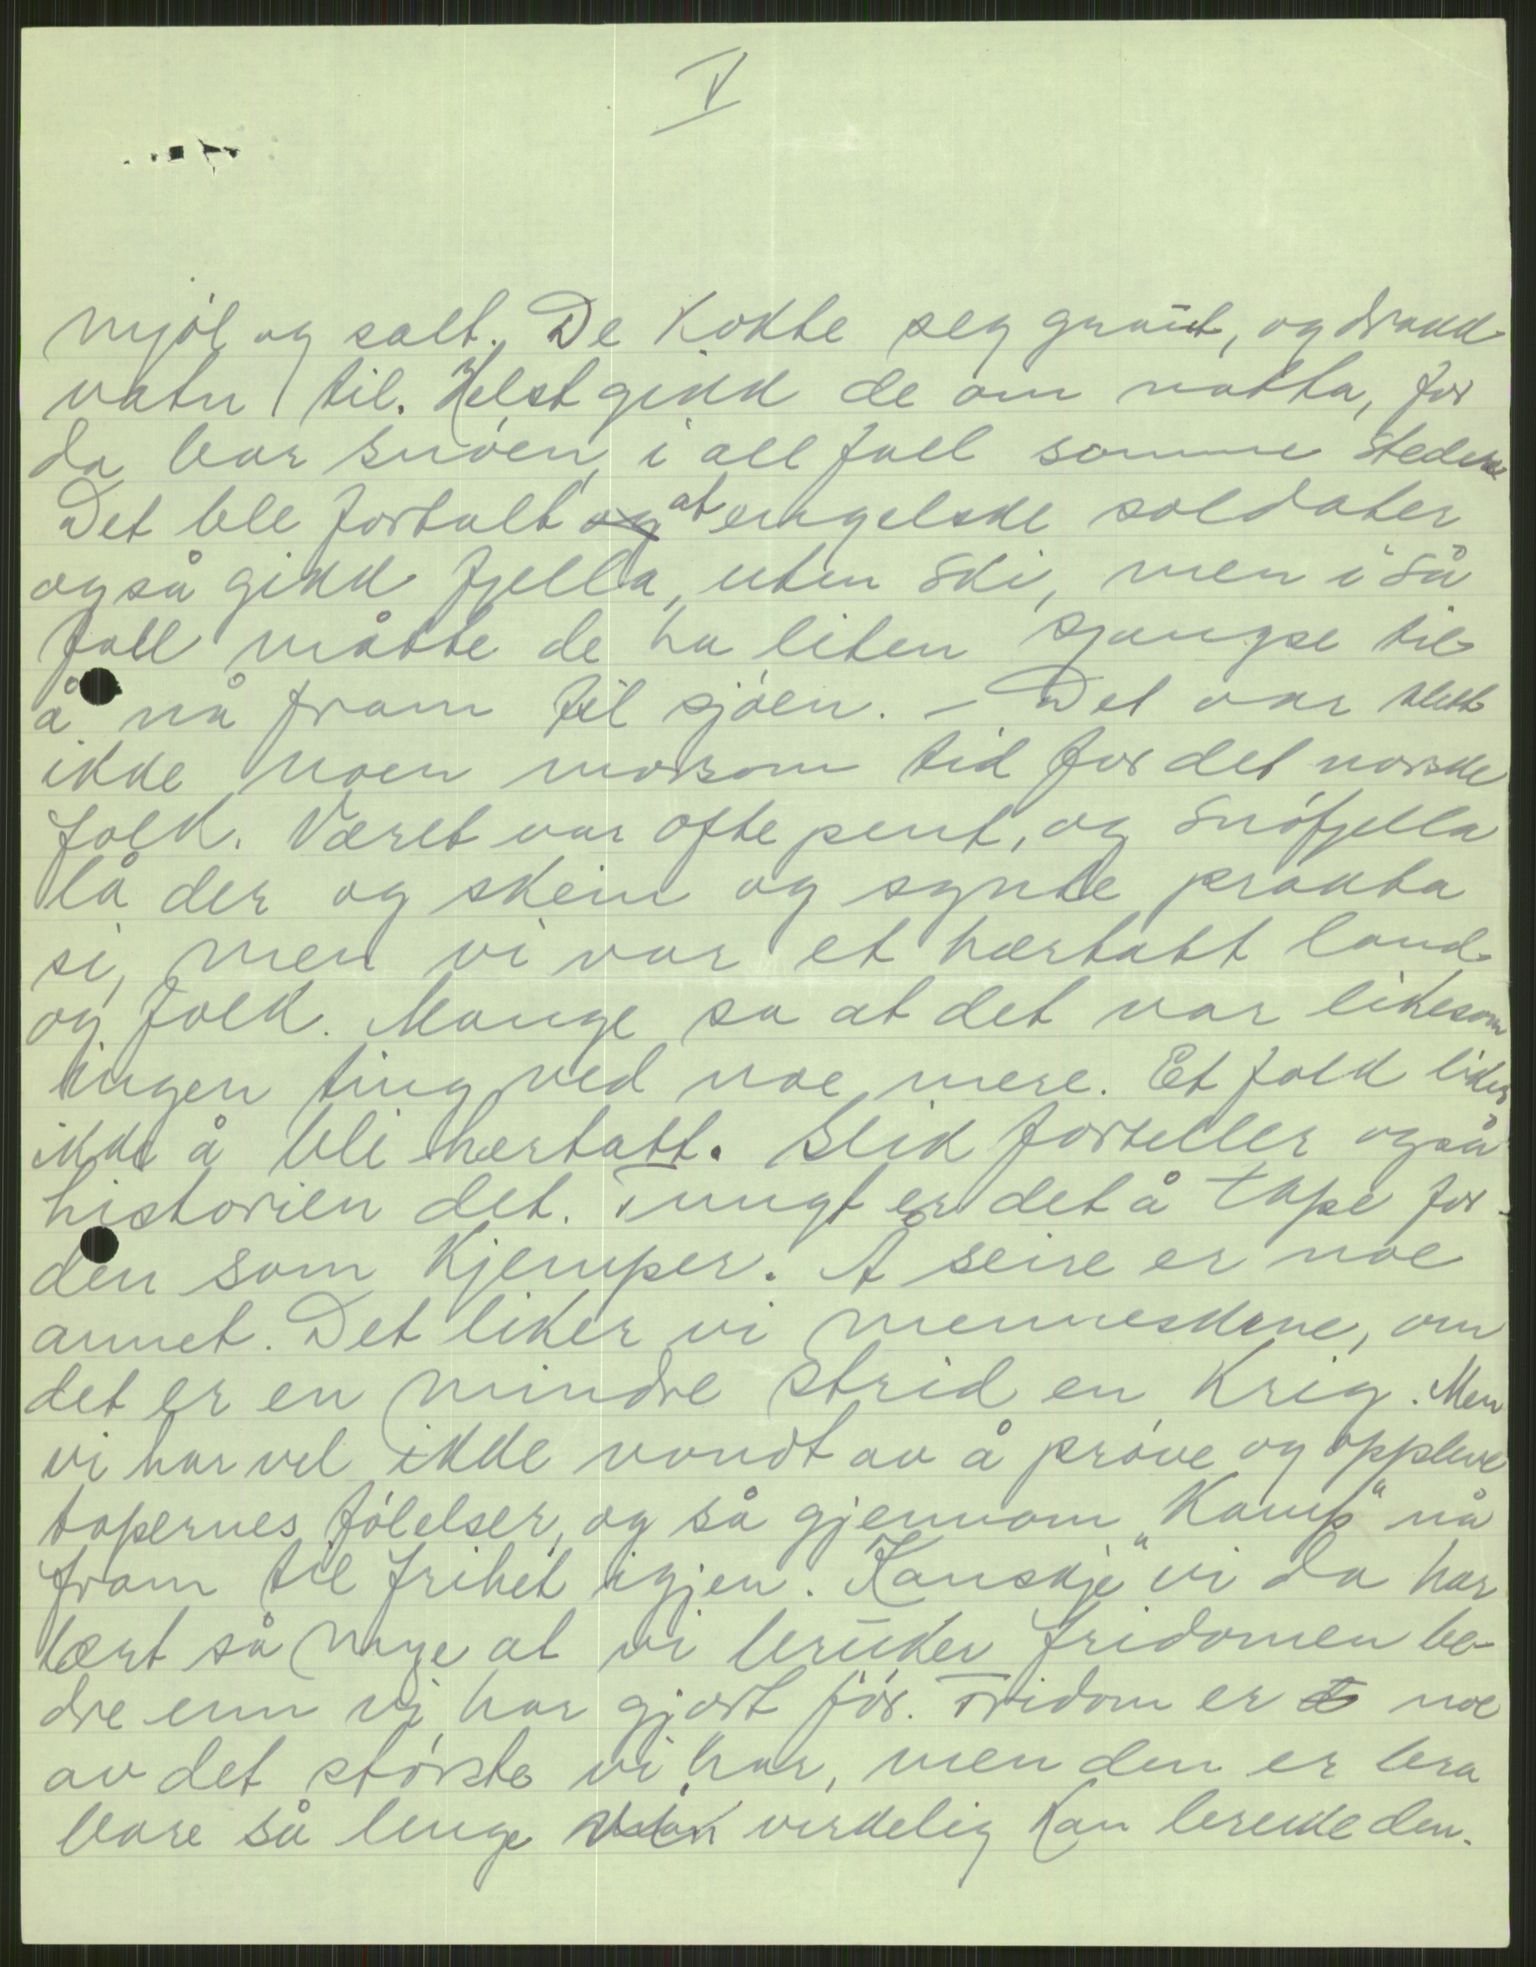 V
mjöl og salt. De kokte seg graut, og drakk
vatn til. Helst gikk de om natta, for
da bar snöen, i all fall somme steder.
Det ble fortalt at engelske soldater
også gikk fjella, uten ski, men i så
fall måtte de ha liten sjangse til
å nå fram til sjöen. – Det var slett
ikke noen morsom tid for det norske
folk. Været var ofte pent, og snöfjella
lå der og skein og synte prakta
si, men vi var et hærtatt land
og folk. Mange sa at det var likesom
ingen ting ved noe mere. Et folk liker
ikke å bli hærtatt. Slik forteller også
historien det. Tungt er det å tape for
den som kjemper. Å seire er noe
annet. Det liker vi menneskene, om
det er en mindre strid en krig. Men
vi har vel ikke vondt av å pröve og oppleve
tapernes fölelser, og så gjennom „Kamp“ nå
fram til frihet igjen. Kanskje vi da har
lært så mye at vi bruker fridomen be-
dre enn vi har gjort för. Fridom er noe
av det störste vi har, men den er bra
bare så lenge vi virkelig kan bruke den.